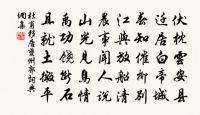 伏枕雲安縣
遷居白帝城
春知催柳別
江與放船清
農事聞人說
山光見鳥情
禹功饒斷石
且就土微平
杜甫移居夔州郭 詞典
網集